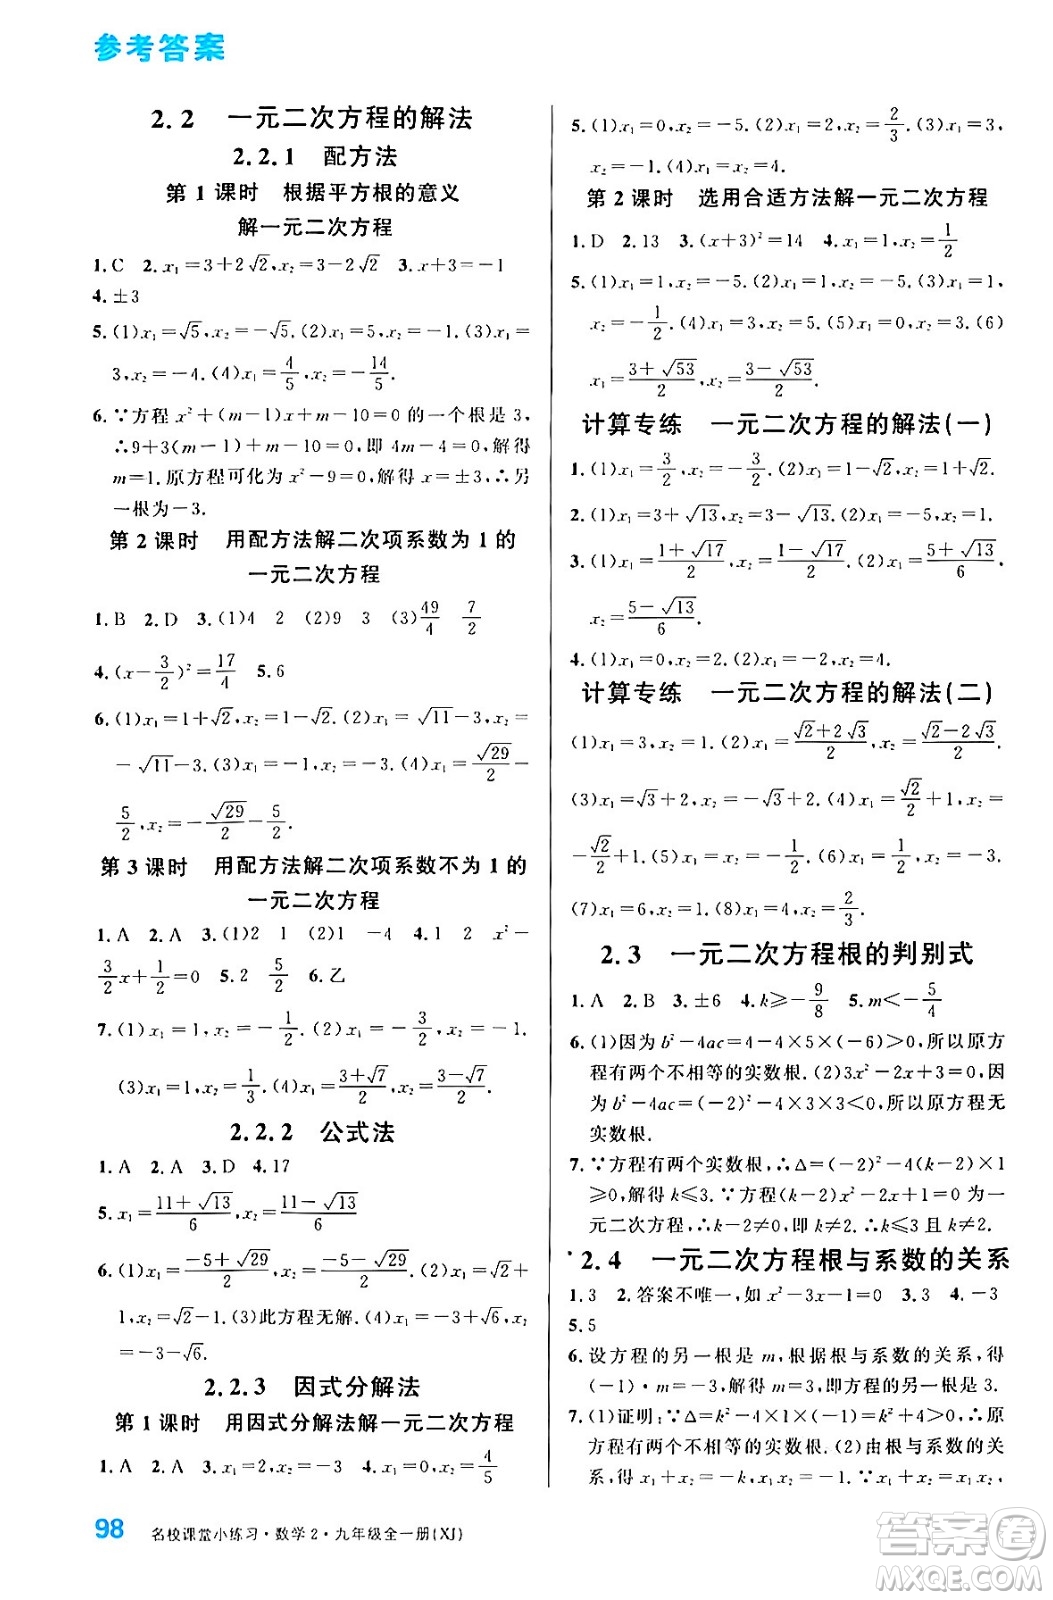 参考答案
2.2 一元二次方程的解法
2.2.1 配方法
第1课时 根据平方根的意义
解一元二次方程
1.C 2.x₁=3+2√2,x₂=3-2√2 3.x+3=-1
4.±3
5.(1)x₁=√5,x₂=-√5.(2)x₁=5,x₂=-1.(3)x₁=
3,x₂=-4.(4)x₁=4/5,x₂=-14/5.
6.∵方程 x²+(m-1)x+m-10=0 的一个根是 3,
∴9+3(m-1)+m-10=0,即 4m-4=0,解得
m=1.原方程可化为 x²-9=0,解得 x=±3,∴另
一根为-3.
第2课时 用配方法解二次项系数为1的
一元二次方程
1.B 2.D 3.(1)4 2 (2)9 3 (3)49/4 7/2
4.(x-3/2)²=17/4 5.6
6.(1)x₁=1+√2,x₂=1-√2.(2)x₁=√11-3,x₂=
-√11-3.(3)x₁=-1,x₂=4.(4)x₁=√29/2-
5/2,x₂=-√29/2-5/2.
第3课时 用配方法解二次项系数不为1的
一元二次方程
1.A 2.A 3.(1)2 1 (2)1 -4 4.1 2 x²-
3/2x+1/2=0 5.2 5/2 6.乙
7.(1)x₁=1,x₂=-1/2.(2)x₁=-3/2,x₂=-1.
(3)x₁=-1,x₂=1/3.(4)x₁=(3+√7)/2,x₂=(3-√7)/2.
2.2.2 公式法
1.A 2.A 3.D 4.17
5.x₁=(11+√13)/6,x₂=(11-√13)/6
6.(1)x₁=(-5+√29)/2,x₂=(-5-√29)/2.(2)x₁=√2+
1,x₂=√2-1.(3)此方程无解.(4)x₁=-3+√6,x₂=
-3-√6.
2.2.3 因式分解法
第1课时 用因式分解法解一元二次方程
1.A 2.A 3.x₁=2,x₂=-3 4.x₁=0,x₂=4/5
5.(1)x₁=0,x₂=-5.(2)x₁=2,x₂=2/3.(3)x₁=3,
x₂=-1.(4)x₁=-2,x₂=4.
第2课时 选用合适方法解一元二次方程
1.D 2.13 3.(x+3)²=14 4.x₁=1,x₂=1/2
5.(1)x₁=1,x₂=-5.(2)x₁=1,x₂=-5.(3)x₁=1,
x₂=-1/2.(4)x₁=3,x₂=5.(5)x₁=0,x₂=3.(6)
x₁=(3+√53)/2,x₂=(3-√53)/2.
计算专练 一元二次方程的解法(一)
1.(1)x₁=3/2,x₂=-3/2.(2)x₁=1-√2,x₂=1+√2.
2.(1)x₁=3+√13,x₂=3-√13.(2)x₁=5,x₂=1.
3.(1)x₁=(1+√17)/2,x₂=(1-√17)/2.(2)x₁=(5+√13)/6,
x₂=(5-√13)/6.
4.(1)x₁=0,x₂=2.(2)x₁=-2,x₂=4.
计算专练 一元二次方程的解法(二)
(1)x₁=3,x₂=1.(2)x₁=(√2+2√3)/2,x₂=(√2-2√3)/2.
(3)x₁=√3+2,x₂=-√3+2.(4)x₁=√2/2+1,x₂=
-√2/2+1.(5)x₁=2,x₂=-1/2.(6)x₁=1,x₂=-3.
(7)x₁=6,x₂=-1.(8)x₁=4,x₂=2/3.
2.3 一元二次方程根的判别式
1.A 2.B 3.±6 4.k≥-9/8 5.m<-5/4
6.(1)因为 b²-4ac=4-4×5×(-6)>0,所以原方
程有两个不相等的实数根.(2)3x²-2x+3=0,因
为 b²-4ac=(-2)²-4×3×3<0,所以原方程无
实数根.
7.∵方程有两个实数根,∴Δ=(-2)²-4(k-2)×1
≥0,解得 k≤3.∵方程(k-2)x²-2x+1=0 为一
元二次方程,∴k-2≠0,即 k≠2.∴k≤3 且 k≠2.
2.4 一元二次方程根与系数的关系
1.3 2.答案不唯一,如 x²-3x-1=0 3.3 4.-3
5.5
6.设方程的另一根是 m,根据根与系数的关系,得
(-1)·m=-3,解得 m=3.则方程的另一根是 3.
7.(1)证明:∵Δ=k²-4×1×(-1)=k²+4>0,∴原
方程有两个不相等的实数根.(2)由根与系数的关
系,得 x₁+x₂=-k,x₁x₂=-1.∵x₁+x₂=x₁x₂,
98 名校课堂小练习·数学2·九年级全一册(XJ)
答案圈
MXQE.COM